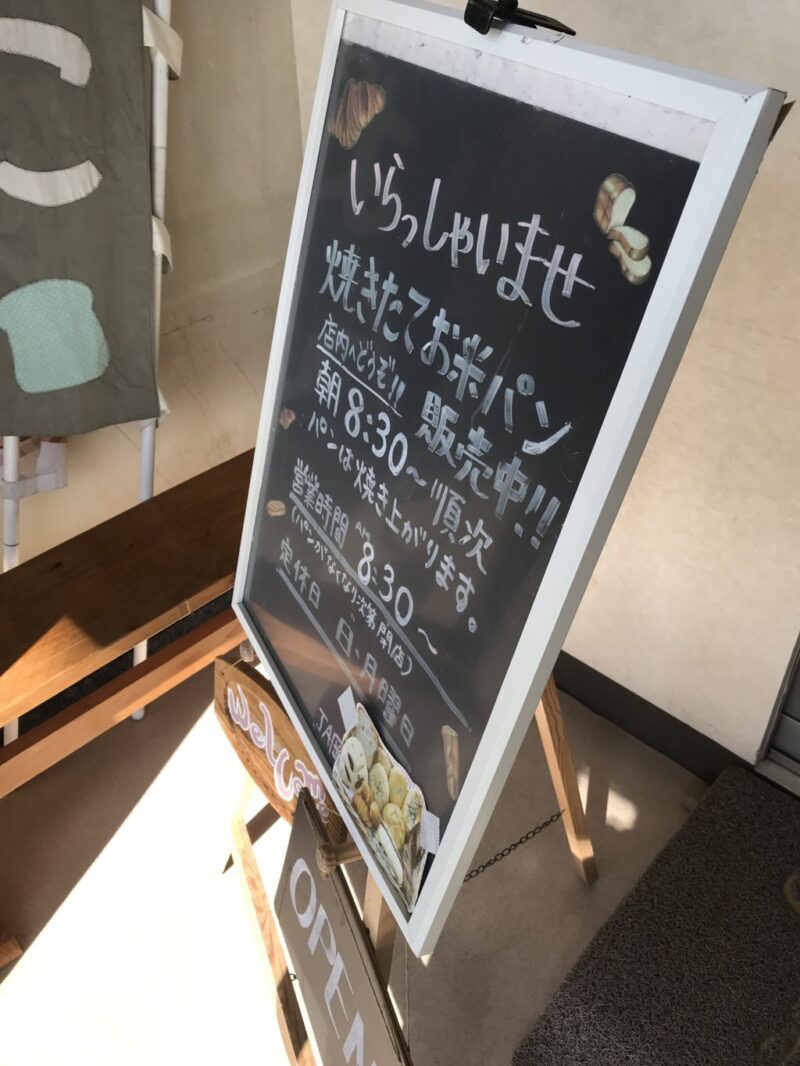 いらっしゃいませ
焼きたてお米パン
店内へどうぞ!! 販売中!!
朝8:30～順次
パンは焼き上がります。
営業時間 AM 8:30～
(パンがなくなり次第閉店)
定休日 日、月曜日
Welcome
OPEN